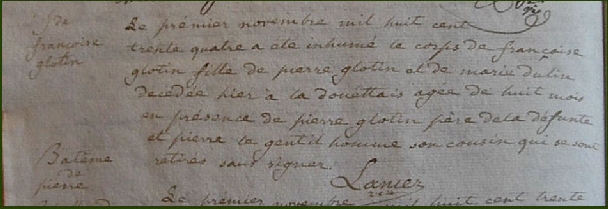 de
françoise
glotin
Le prémier novembre mil huit cent
trente quatre a été inhumé le corps de françoise
glotin fille de pierre glotin et de marie dulin
decedée hier à la douettais agée de huit mois
en présence de pierre glotin père dela défunte
et pierre le gentil homme son cousin qui se sont
retirés sans signer.
Batême
de
pierre
Le premier novembre mil huit cent trente